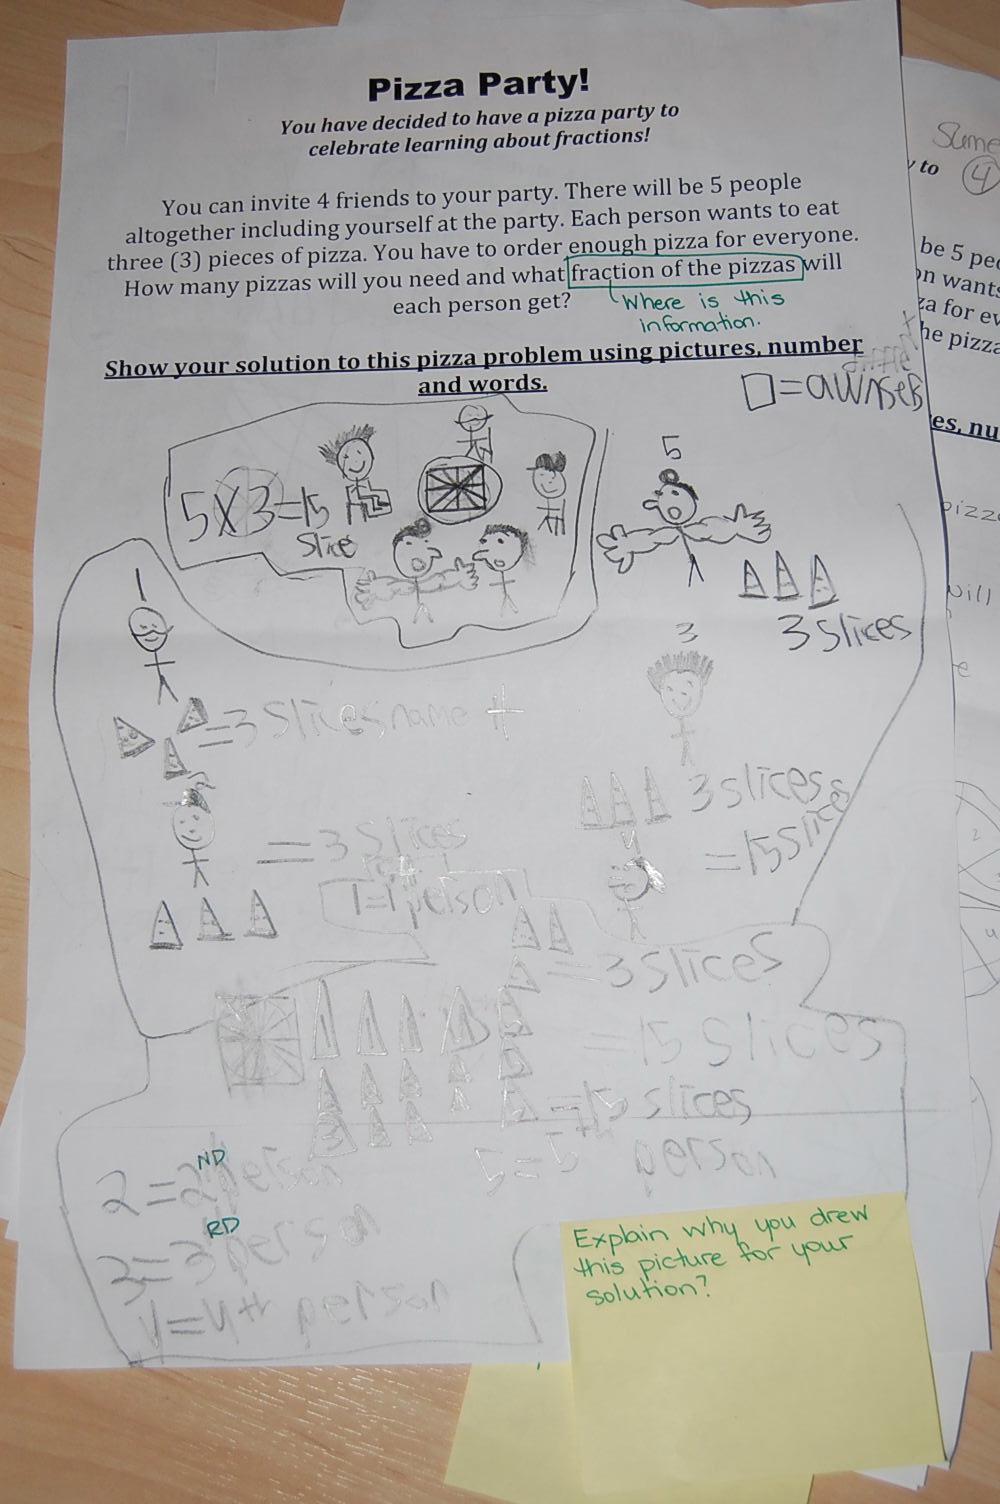 Pizza Party!
You have decided to have a pizza party to
celebrate learning about fractions!
You can invite 4 friends to your party. There will be 5 people
altogether including yourself at the party. Each person wants to eat
three (3) pieces of pizza. You have to order enough pizza for everyone.
How many pizzas will you need and what fraction of the pizzas will
each person get?
Where is this
information.
Show your solution to this pizza problem using pictures, number
and words.
□=awnser
5x3=15
Slice
5
3 Slices
1
3
=3 Slices name #
3 slices
=3 Slices
=15 slices
4
1=1 person
=3 slices
=15 slices
=15 slices
2=2ND person
5=5th person
3=3RD person
4=4th person
Explain why you drew
this picture for your
solution?
Same
y to
4
be 5 peo
on wants
za for ev
he pizza
es, nu
pizz
will
e
2
4